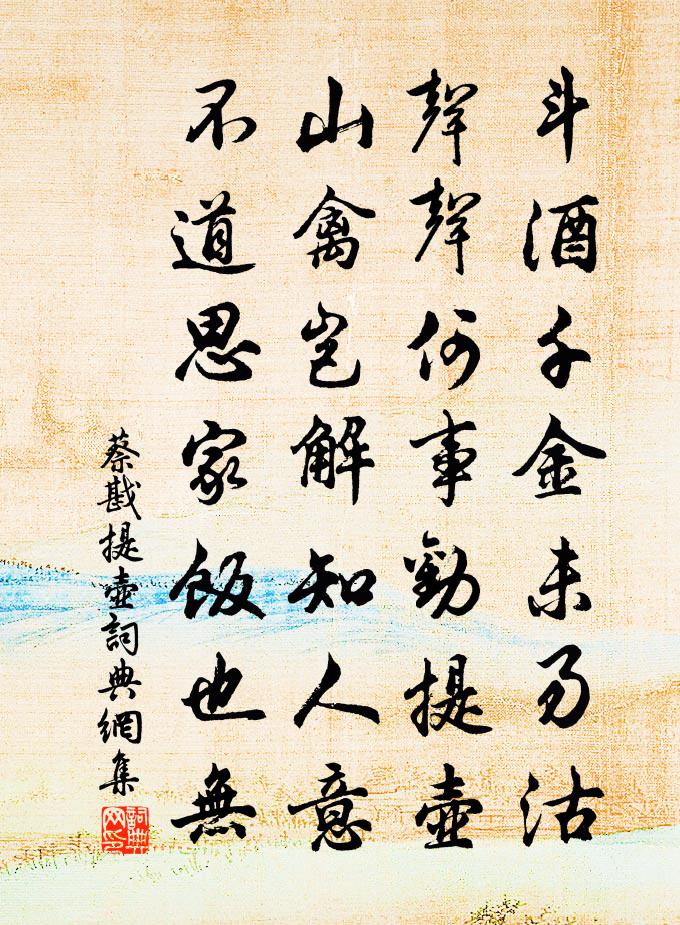 斗酒千金未易沽
聲聲何事勸提壺
山禽豈解知人意
不道思家飯也無
蔡戡提壺詞典網集
詞典网印